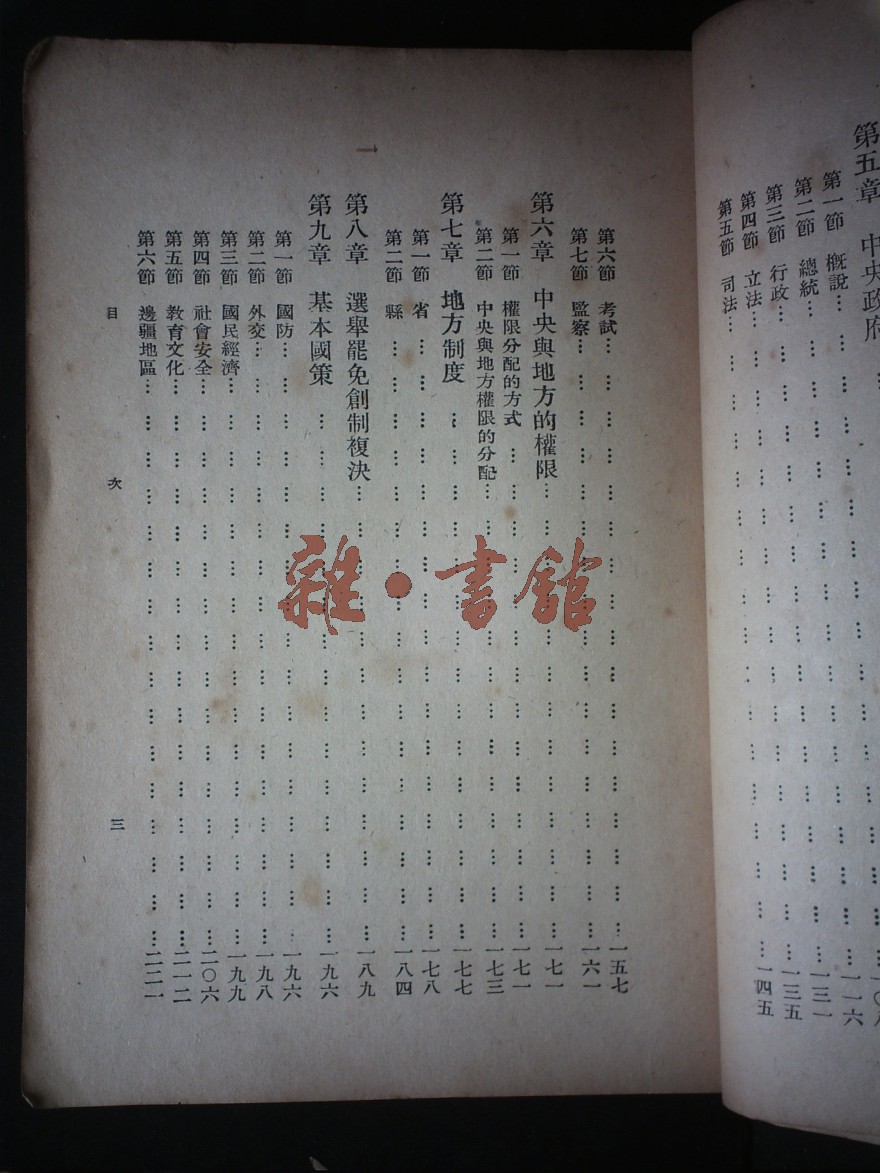 第五章 中央政府……一〇八
第一節 概說……一一六
第二節 總統……一三一
第三節 行政……一三五
第四節 立法……一四五
第五節 司法……
第六節 考試……一五七
第七節 監察……一六一
第六章 中央與地方的權限……一七一
第一節 權限分配的方式……一七一
第二節 中央與地方權限的分配……一七三
第七章 地方制度……一七七
第一節 省……一七八
第二節 縣……一八四
第八章 選舉罷免創制複決……一八九
第九章 基本國策……一九六
第一節 國防……一九六
第二節 外交……一九八
第三節 國民經濟……一九九
第四節 社會安全……二〇六
第五節 教育文化……二一二
第六節 邊疆地區……二二一
目 次 三
雜·書館